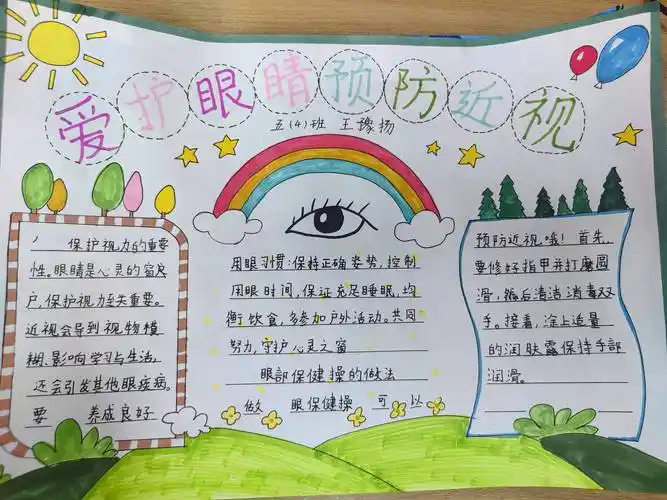 爱护眼睛预防近视
五(4)班 王豫扬
保护视力的重要
性。眼睛是心灵的窗
户,保护视力至关重要。
近视会导到视物模
糊、影响学习与生活,
还会引发其他眼疾病。
要 养成良好
用眼习惯:保持正确姿势,控制
用眼时间,保证充足睡眠,均
衡饮食,多参加户外活动。共同
努力,守护心灵之窗
眼部保健操的做法
做 眼保健操 可以
预防近视哦!首先,
要修好指甲并打磨圆
滑,然后清洁消毒双
手。接着,涂上适量
的润肤露保持手部
润滑。